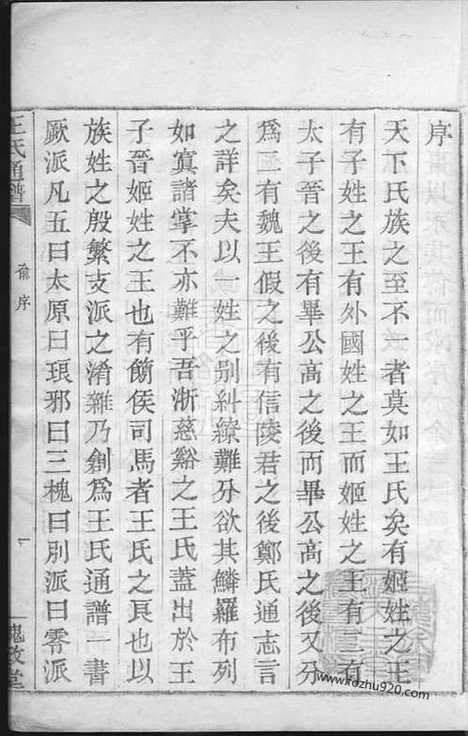 序
天下氏族之至不一者莫如王氏矣有姬姓之王
有子姓之王有外國姓之王而姬姓之王有三有
太子晉之後有畢公高之後而畢公高之後又分
爲二有魏王假之後有信陵君之後鄭氏通志言
之詳矣夫以一姓之别糾繚難分欲其鱗羅布列
如寘諸掌不亦難乎吾浙慈谿之王氏蓋出於王
子晉姬姓之王也有簡侯司馬者王氏之良也以
族姓之殷繁支派之淆雜乃創爲王氏通譜一書
厥派凡五曰太原曰琅邪曰三槐曰別派曰零派
王氏通譜
序
一
槐政堂
www.fozhu920.com